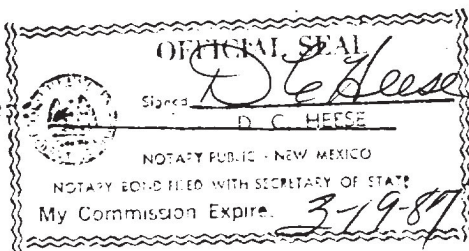 OFFICIAL SEAL
Signed D C Heese
D. C. HEESE
NOTARY PUBLIC - NEW MEXICO
NOTARY BOND FILED WITH SECRETARY OF STATE
My Commission Expire. 3-19-87